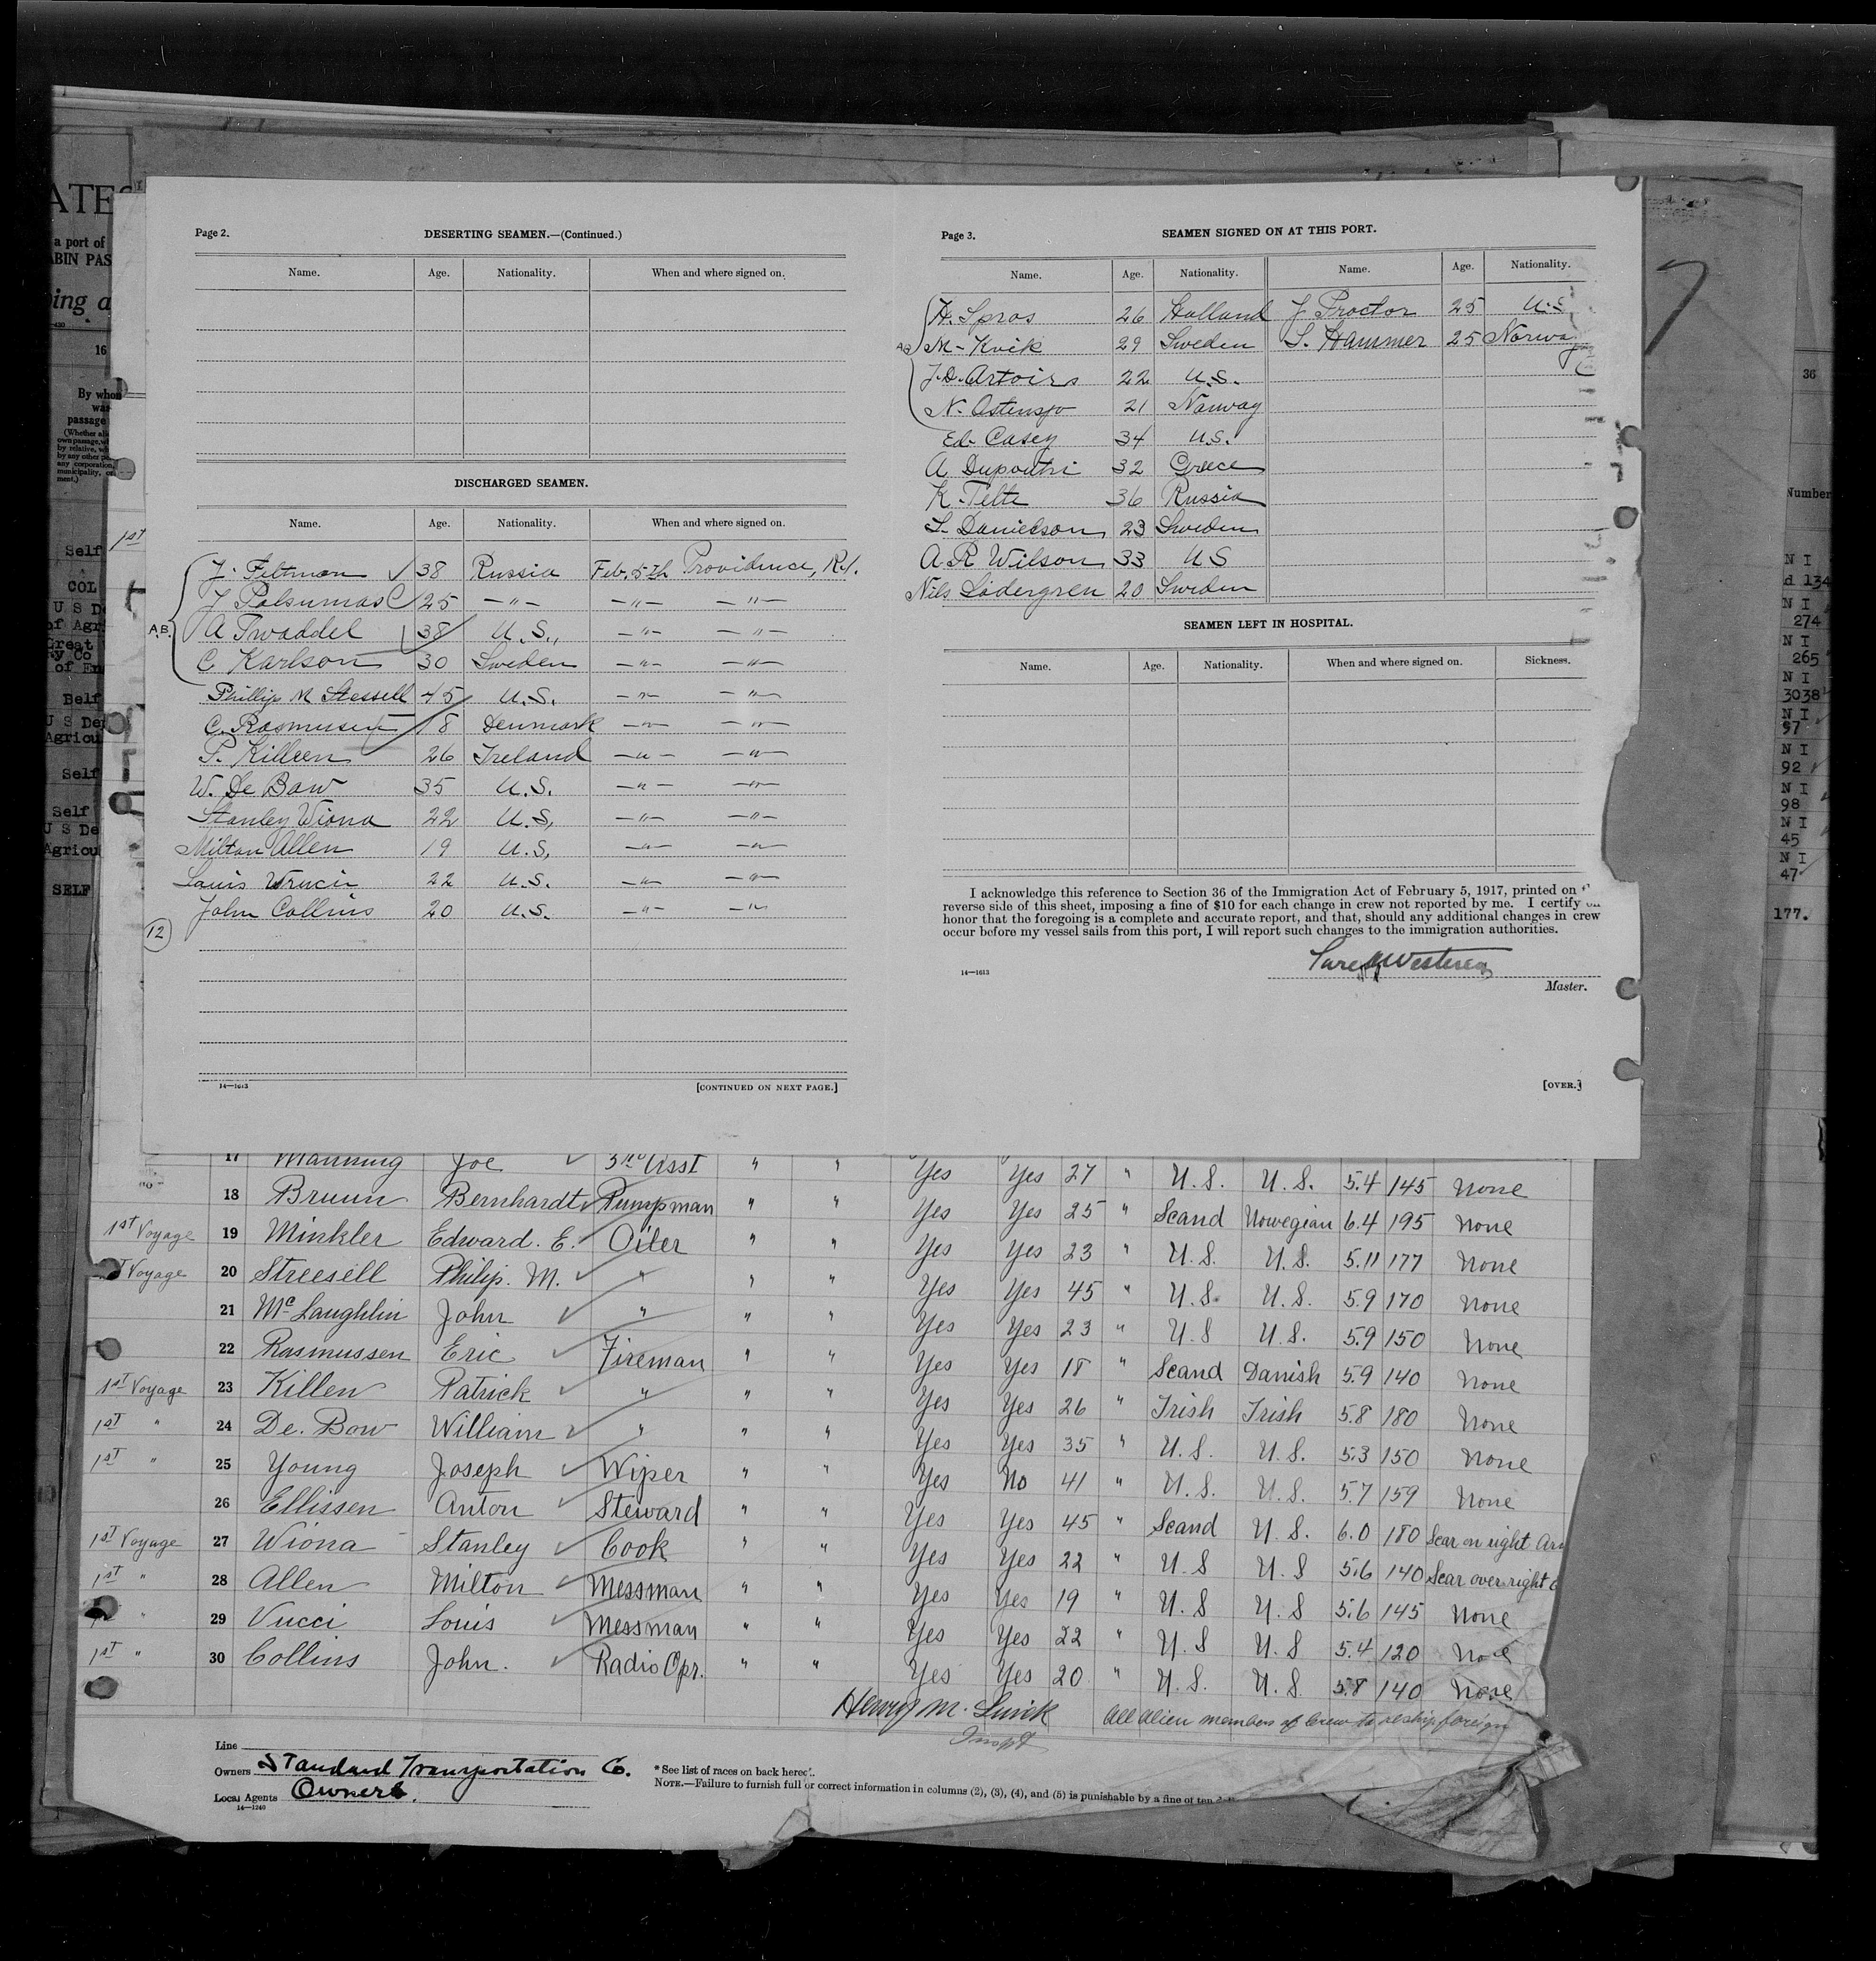 Page 2.
DESERTING SEAMEN.—(Continued.)
Name. Age. Nationality. When and where signed on.
DISCHARGED SEAMEN.
Name. Age. Nationality. When and where signed on.
J. Feltman 38 Russia Feb. 5th Providence, R.I.
J 25 —"— —"— —"—
A.B. A Twaddel 38 U.S., —"— —"—
C Karlson 30 Sweden —"— —"—
Phillip M Stessell 45 U.S. —"— —"—
C. Rasmusen 18 Denmark —"— —"—
P. Killeen 26 Ireland —"— —"—
W. De Bow 35 U.S. —"— —"—
Stanley Wiona 22 U.S, —"— —"—
Milton Allen 19 U.S, —"— —"—
Louis 22 U.S. —"— —"—
John Collins 20 U.S. —"— —"—
12
14—1613 [CONTINUED ON NEXT PAGE.]
Page 3.
SEAMEN SIGNED ON AT THIS PORT.
Name. Age. Nationality. Name. Age. Nationality.
H. Spros 26 Holland J Proctor 25 U.S.
M- Kvik 29 Sweden S. Hammer 25 Norway
J.D. Artoirs 22 U.S.
N. Ostensjo 21 Norway
Ed. Casey 34 U.S.
A. Dupoutri 32 Greece
K. Telte 36 Russia
S. Danielson 23 Sweden
A.R Wilson 33 US
Nils Södergren 20 Sweden
SEAMEN LEFT IN HOSPITAL.
Name. Age. Nationality. When and where signed on. Sickness.
I acknowledge this reference to Section 36 of the Immigration Act of February 5, 1917, printed on
reverse side of this sheet, imposing a fine of $10 for each change in crew not reported by me. I certify
honor that the foregoing is a complete and accurate report, and that, should any additional changes in crew
occur before my vessel sails from this port, I will report such changes to the immigration authorities.
14—1613
Master.
[OVER.]
17 Manning Joe 3rd Asst " " Yes Yes 27 " U.S. U.S. 5.4 145 None
18 Bruun Bernhardt Pumpman " " Yes Yes 25 " Scand Nowegian 6.4 195 None
1st Voyage 19 Minkler Edward. E. Oiler " " Yes Yes 23 " U.S. U.S. 5.11 177 None
Voyage 20 Streesell Philip. M. " " " Yes Yes 45 " U.S. U.S. 5.9 170 None
21 McLaughlin John " " " Yes Yes 23 " U.S U.S. 5.9 150 None
22 Rasmussen Eric Fireman " " Yes Yes 18 " Scand Danish 5.9 140 None
1st Voyage 23 Killen Patrick " " " Yes Yes 26 " Irish Irish 5.8 180 None
1st " 24 De. Bow William " " " Yes Yes 35 " U.S. U.S. 5.3 150 None
1st " 25 Young Joseph Wiper " " Yes No 41 " U.S. U.S. 5.7 159 None
26 Ellissen Anton Steward " " Yes Yes 45 " Scand U.S. 6.0 180 Scar on right Arm
1st Voyage 27 Wiona Stanley Cook " " Yes Yes 22 " U.S U.S 5.6 140 Scar over right
1st " 28 Allen Milton Messman " " Yes Yes 19 " U.S U.S 5.6 145 None
" 29 Vucci Louis Messman " " Yes Yes 22 " U.S U.S 5.4 120 None
1st " 30 Collins John. Radio Opr. " " Yes Yes 20 " U.S. U.S. 5.8 140 None
Henry M. All alien members of crew to reship foreign
Inspt
Line
Owners Standard Transportation Co.
Local Agents Owners.
14—1240
* See list of races on back hereof.
NOTE.—Failure to furnish full or correct information in columns (2), (3), (4), and (5) is punishable by a fine of ten
ATES
a port of
ABIN PAS
ing a
16
By whom
was
passage
1st
Self
COL
U S De
of Agri
Great
of En
Self
U S Dep
Agricu
Self
Self
U S De
Agricu
SELF
7
36
Number
N I
134
N I
274
N I
265
N I
3038
N I
57
N I
92
N I
98
N I
45
N I
47
177.